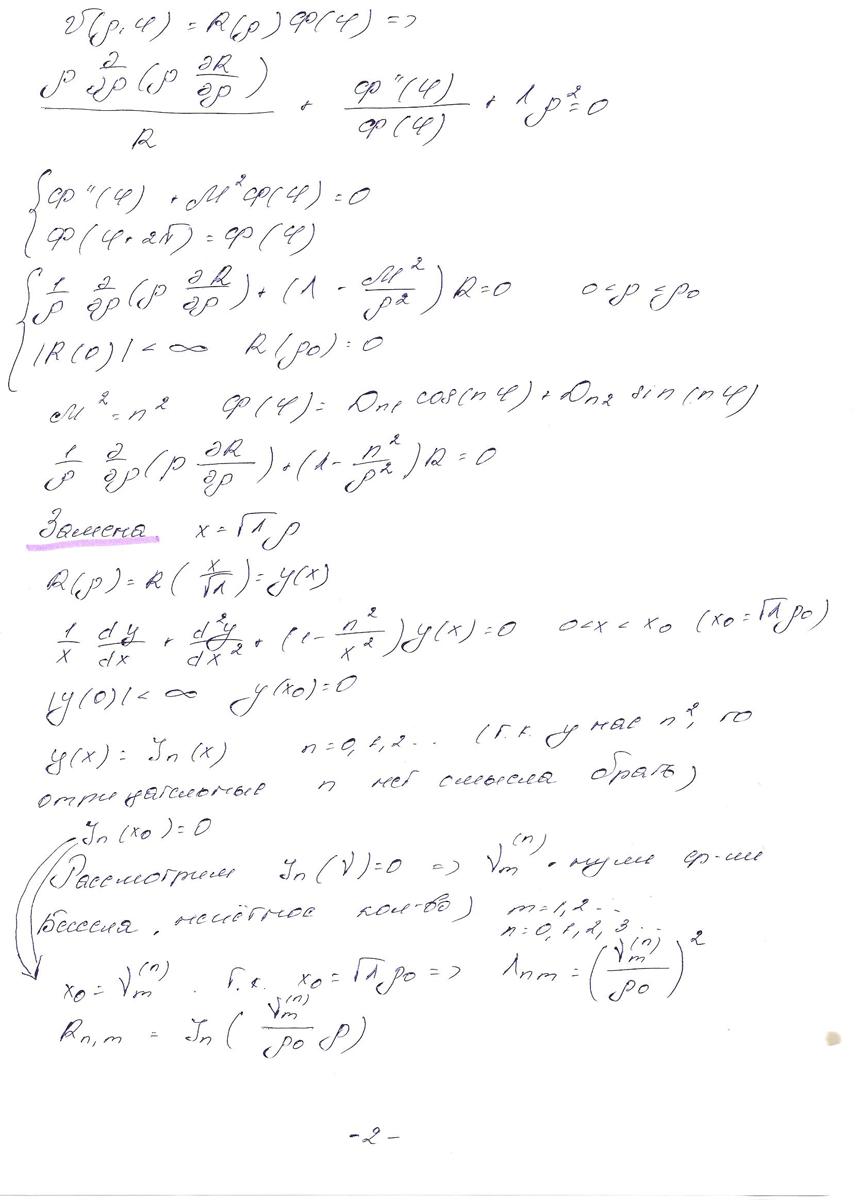 v(ρ,φ) = R(ρ)Φ(φ) =>
ρ ∂/∂ρ (ρ ∂R/∂ρ) / R + Φ''(φ)/Φ(φ) + λρ² = 0
{ Φ''(φ) + μ²Φ(φ) = 0
Φ(φ+2π) = Φ(φ)
{ 1/ρ ∂/∂ρ (ρ ∂R/∂ρ) + (λ - μ²/ρ²) R = 0 0<ρ<ρ₀
|R(0)| < ∞ R(ρ₀) = 0
μ² = n² Φ(φ) = Dn₁ cos(nφ) + Dn₂ sin(nφ)
1/ρ ∂/∂ρ (ρ ∂R/∂ρ) + (λ - n²/ρ²) R = 0
Замена x = √λ ρ
R(ρ) = R(x/√λ) = y(x)
1/x dy/dx + d²y/dx² + (1 - n²/x²) y(x) = 0 0<x<x₀ (x₀ = √λ ρ₀)
|y(0)| < ∞ y(x₀) = 0
y(x) = Jn(x) n = 0,1,2.. (т.к. у нас n², то
отрицательные n нет смысла брать)
Jn(x₀) = 0
Рассмотрим Jn(ν) = 0 => νm⁽ⁿ⁾ - нули ф-ии
Бесселя, несчётное кол-во) m = 1,2...
n = 0,1,2,3...
x₀ = νm⁽ⁿ⁾. т.к. x₀ = √λ ρ₀ => λnm = (νm⁽ⁿ⁾/ρ₀)²
Rn,m = Jn(νm⁽ⁿ⁾/ρ₀ ρ)
-2-